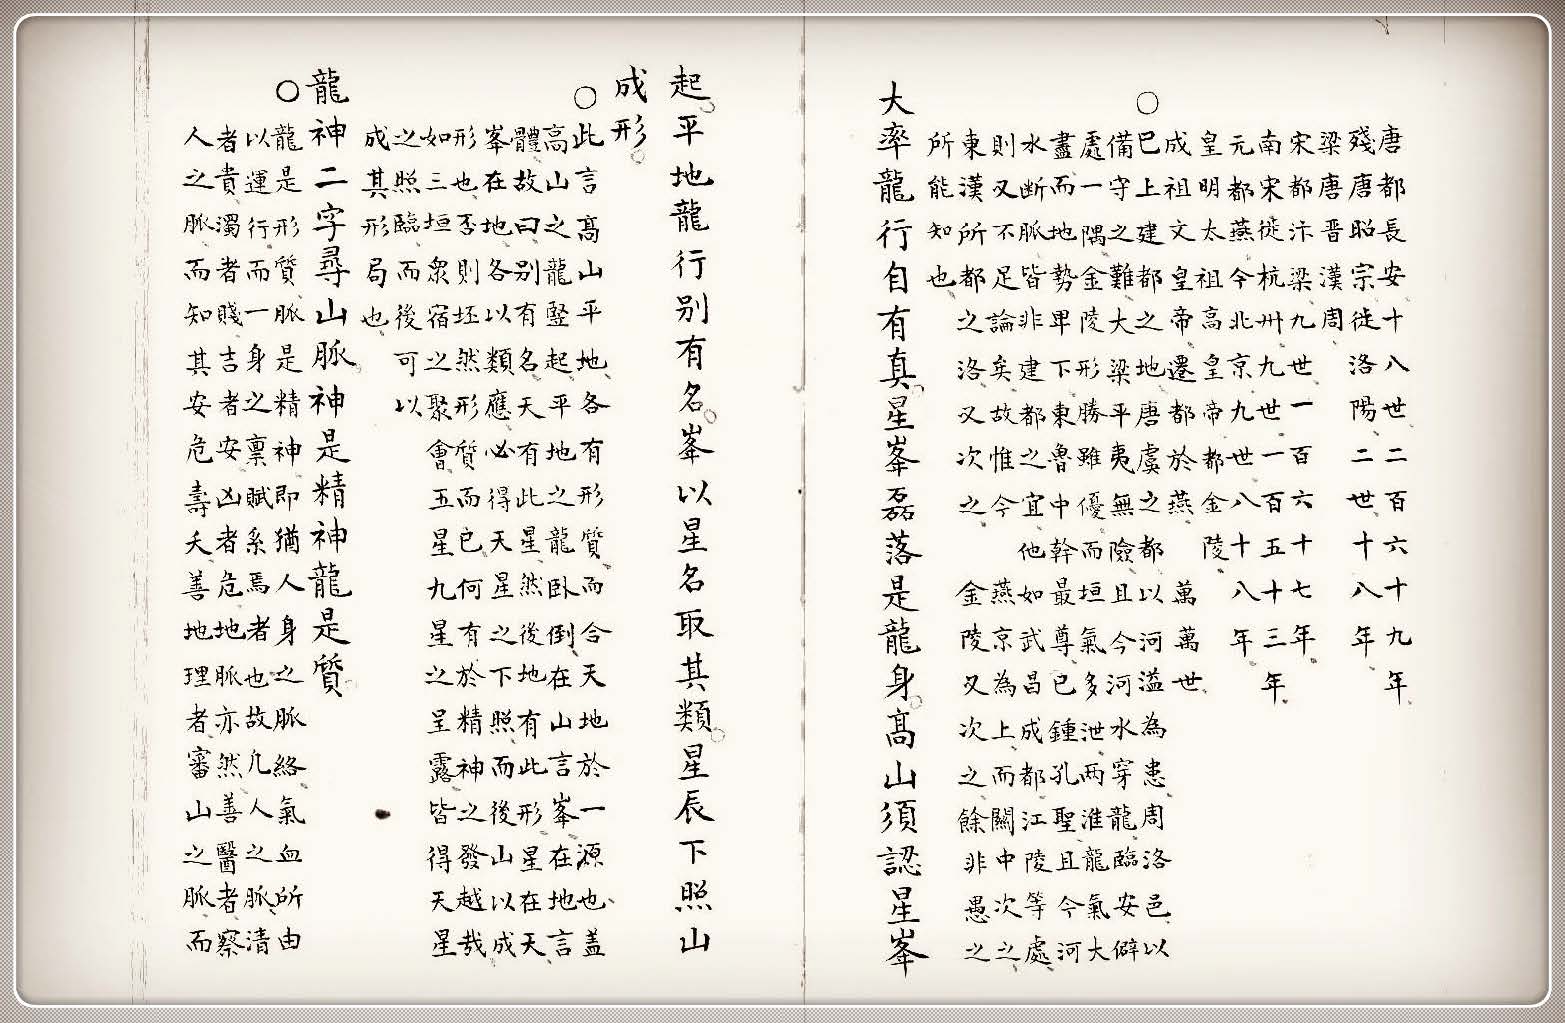 唐都長安十八世二百六十九年
殘唐昭宗徙洛陽二世十八年
梁唐晉漢周
宋都汴梁九世一百六十七年
南宋徙杭州九世一百五十三年
元都燕今北京九世八十八年
皇明太祖高皇帝都金陵
成祖文皇帝遷都於燕 萬萬世
○巳上建都之地唐虞之都以河溢為患周洛邑以
備守之難大梁平夷無險且今河水穿龍臨安僻
處一隅金陵形勝雖優而垣氣多泄两淮龍氣大
盡而地勢畢下東魯中幹最尊已鍾孔聖且今河
水断脈皆非建都之宜他如武昌成都江陵等處
則又不足論矣故惟今 燕京為上而關中次之
東漢所都之洛又次之 金陵又次之餘非愚之
所能知也
大率龍行自有真星峯磊落是龍身高山須認星峯
起平地龍行别有名峯以星名取其類星辰下照山
成形
○此言高山平地各有形質而合天地於一源也盖
高山之龍竪起平地之龍卧倒在山言峯在地言
體故曰别有名天有此星然後地有此形星在天
峯在地各以類應必得天星之下照而後山以成
形也否則坯然形質而已何有於精神之發越哉
如三垣衆宿之聚會五星九星之呈露皆得天星
之照臨而後可以
成其形局也
龍神二字尋山脈神是精神龍是質
○龍是形質脈是精神即猶人身之脈絡氣血所由
以運行而一身之禀賦系焉者也故凡人之脈清
者貴濁者賤吉者安凶者危地脈亦然善醫者察
人之脈而知其安危壽夭善地理者審山之脈而